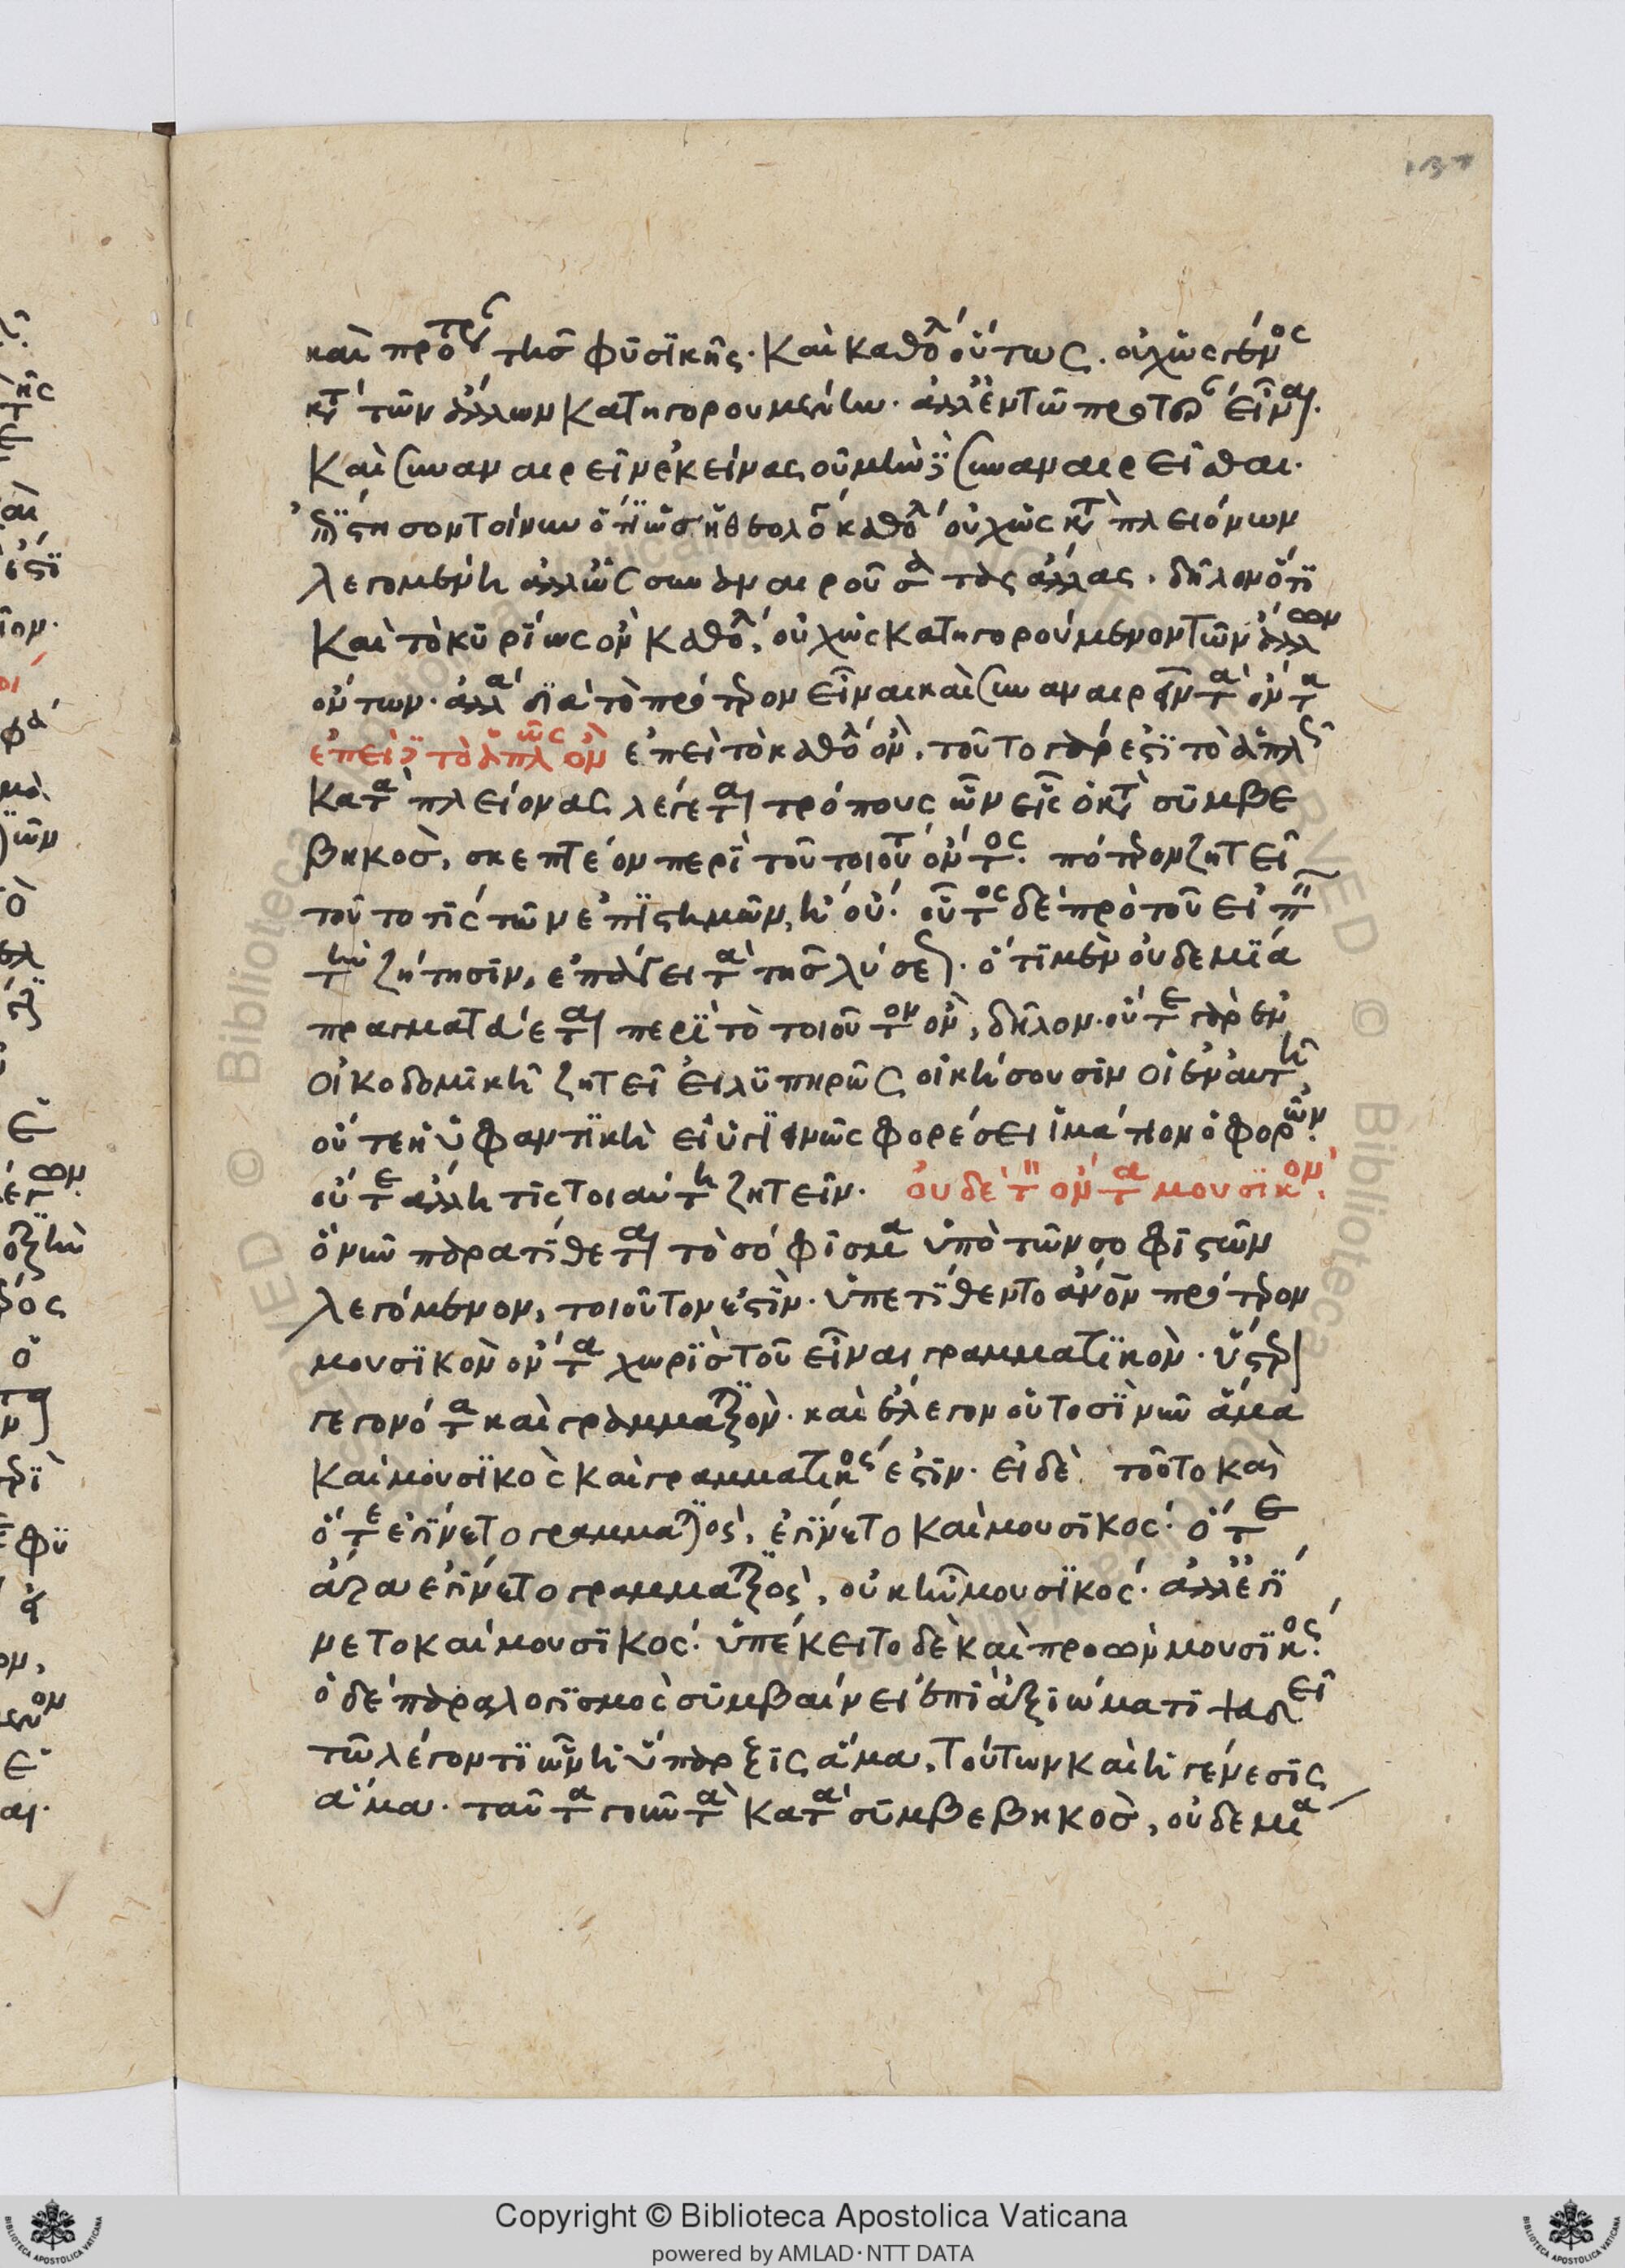 137
καὶ προτέρα τῆς φυσικῆς. καὶ καθόλου οὕτως. οὐχ ὡς γένος
κατὰ τῶν ἄλλων κατηγορουμένην. ἀλλ' ἐν τῶ πρώτως εἶναι.
καὶ συναναιρεῖν ἐκείνας οὐ μὴν καὶ συναναιρεῖσθαι.
λέγομένη ἀλλ' ὡς συναναιροῦσα τὰς ἄλλας. δῆλον ὅτι
καὶ τὸ κυρίως ὂν καθόλου, οὐχ ὡς κατηγορούμενον τῶν ἄλλων
ὄντων. ἀλλὰ διὰ τὸ πρότερον εἶναι καὶ συναναιρεῖν τὰ ὄντα
ἐπεὶ δὲ τὸ ἁπλῶς ὂν ἐπεὶ τὸ καθόλου ὄν, τοῦτο γάρ ἐστι τὸ ἁπλῶς
κατὰ πλείονας λέγεται τρόπους ὧν εἷς ὁ κατὰ συμβε
βηκός, σκεπτέον περὶ τοῦ τοιούτου ὄντος. πότερον ζητεῖ
τοῦτο τίς τῶν ἐπιστημῶν, ἢ οὔ. οὗτος δὲ πρὸ τοῦ εἰπεῖν
τὴν ζήτησιν, ἐπάγει τὰ τῆς λύσεως. ὅτι μὲν οὐδεμία
πραγματεύεται περὶ τὸ τοιοῦτον ὄν, δῆλον. οὔτε γὰρ ἐν
οἰκοδομικὴ ζητεῖ εἰ λυπηρῶς οἰκήσουσιν οἱ ἐν αὐτῆ,
οὔτε ἡ ὑφαντικὴ εἰ ὑγιεινῶς φορέσει ἱμάτιον ὁ φορῶν.
οὔτε ἄλλη τὶς τοιαύτη ζητεῖν. οὐδέ τι ὄντα μουσικόν,
ὃ νῦν παρατίθεται τὸ σόφισμα ὑπὸ τῶν σοφιστῶν
λεγόμενον, τοιοῦτον ἐστίν. ὑπετίθεντο ἄνθρωπον πρότερον
μουσικὸν ὄντα χωρὶς τοῦ εἶναι γραμματικὸν. ὕστερον
γεγονότα καὶ γραμματικόν. καὶ ἔλεγον οὑτοσὶ νῦν ἅμα
καὶ μουσικὸς καὶ γραμματικός ἐστιν. εἰ δὲ τοῦτο καὶ
ὅτε ἐγίνετο γραμματικός, ἐγίνετο καὶ μουσικός. ὅτε
ἄρα ἐγίνετο γραμματικός, οὐκ ἦν μουσικός. ἀλλ' ἐγί
νετο καὶ μουσικός. ὑπέκειτο δὲ καὶ προὼν μουσικός.
ὁ δὲ παραλογισμὸς συμβαίνει ἐπὶ ἀξιώματι ψευδεῖ
τῶ λέγοντι ὧν ἡ ὕπαρξις ἅμα, τούτων καὶ ἡ γένεσις
ἅμα. ταῦτα γοῦν τὰ κατὰ συμβεβηκός, οὐδεμία